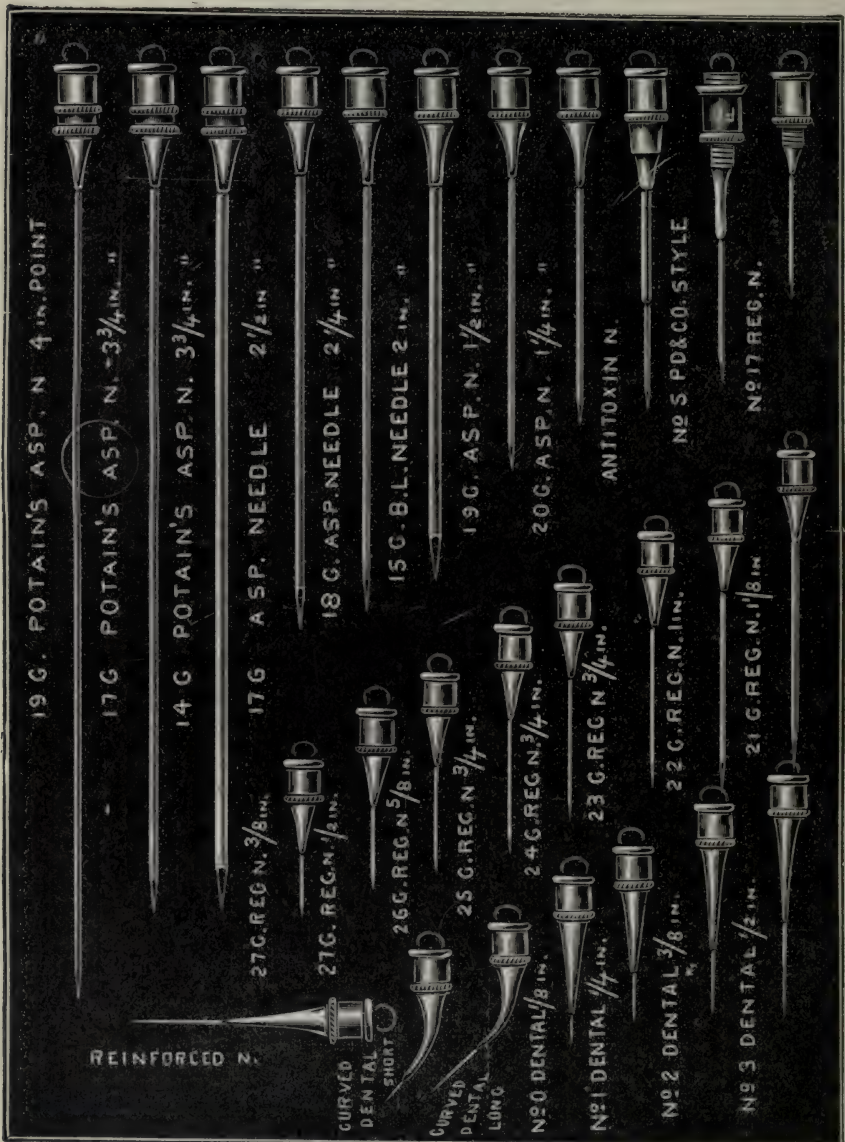 19 G. POTAIN'S ASP. N 4 IN. POINT
17 G POTAIN'S ASP. N. - 3 3/4 IN. "
14 G POTAIN'S ASP. N. 3 3/4 IN. "
17 G ASP. NEEDLE 2 1/2 IN "
18 G. ASP. NEEDLE 2 1/4 IN "
15 G. B.L. NEEDLE 2 IN. "
19 G. ASP. N. 1 1/2 IN. "
20 G. ASP. N. 1 1/4 IN. "
ANTITOXIN N.
Nº 5 PD&CO. STYLE
Nº 17 REG. N.
27 G. REG N. 3/8 IN.
27 G. REG N. 1/2 IN.
26 G. REG N 5/8 IN.
25 G. REG. N 3/4 IN.
24 G. REG N. 3/4 IN.
23 G. REG N 3/4 IN.
22 G. REG. N. 1 IN.
21 G. REG. N. 1 1/8 IN
REINFORCED N.
CURVED
DENTAL
SHORT
CURVED
DENTAL
LONG
Nº 0 DENTAL 1/8 IN.
Nº 1 DENTAL 1/4 IN.
Nº 2 DENTAL 3/8 IN.
Nº 3 DENTAL 1/2 IN.